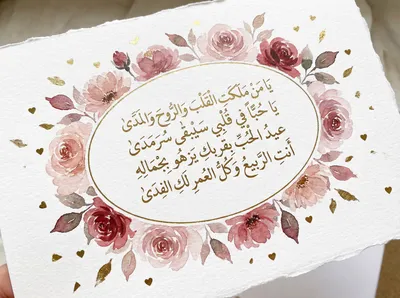 يَا مَنْ مَلَكْتِ الْقَلْبَ وَالرُّوحَ وَالْمَدَىٰ
يَا حُبًّا فِي قَلْبِي سَيَبْقَىٰ سَرْمَدَىٰ
عِيدُ الحُبِّ بِقُرْبِكِ يَزْهُو بِجَمَالِهِ
أَنْتِ الرَّبِيعُ وَكُلُّ العُمرِ لَكِ الفِدَىٰ